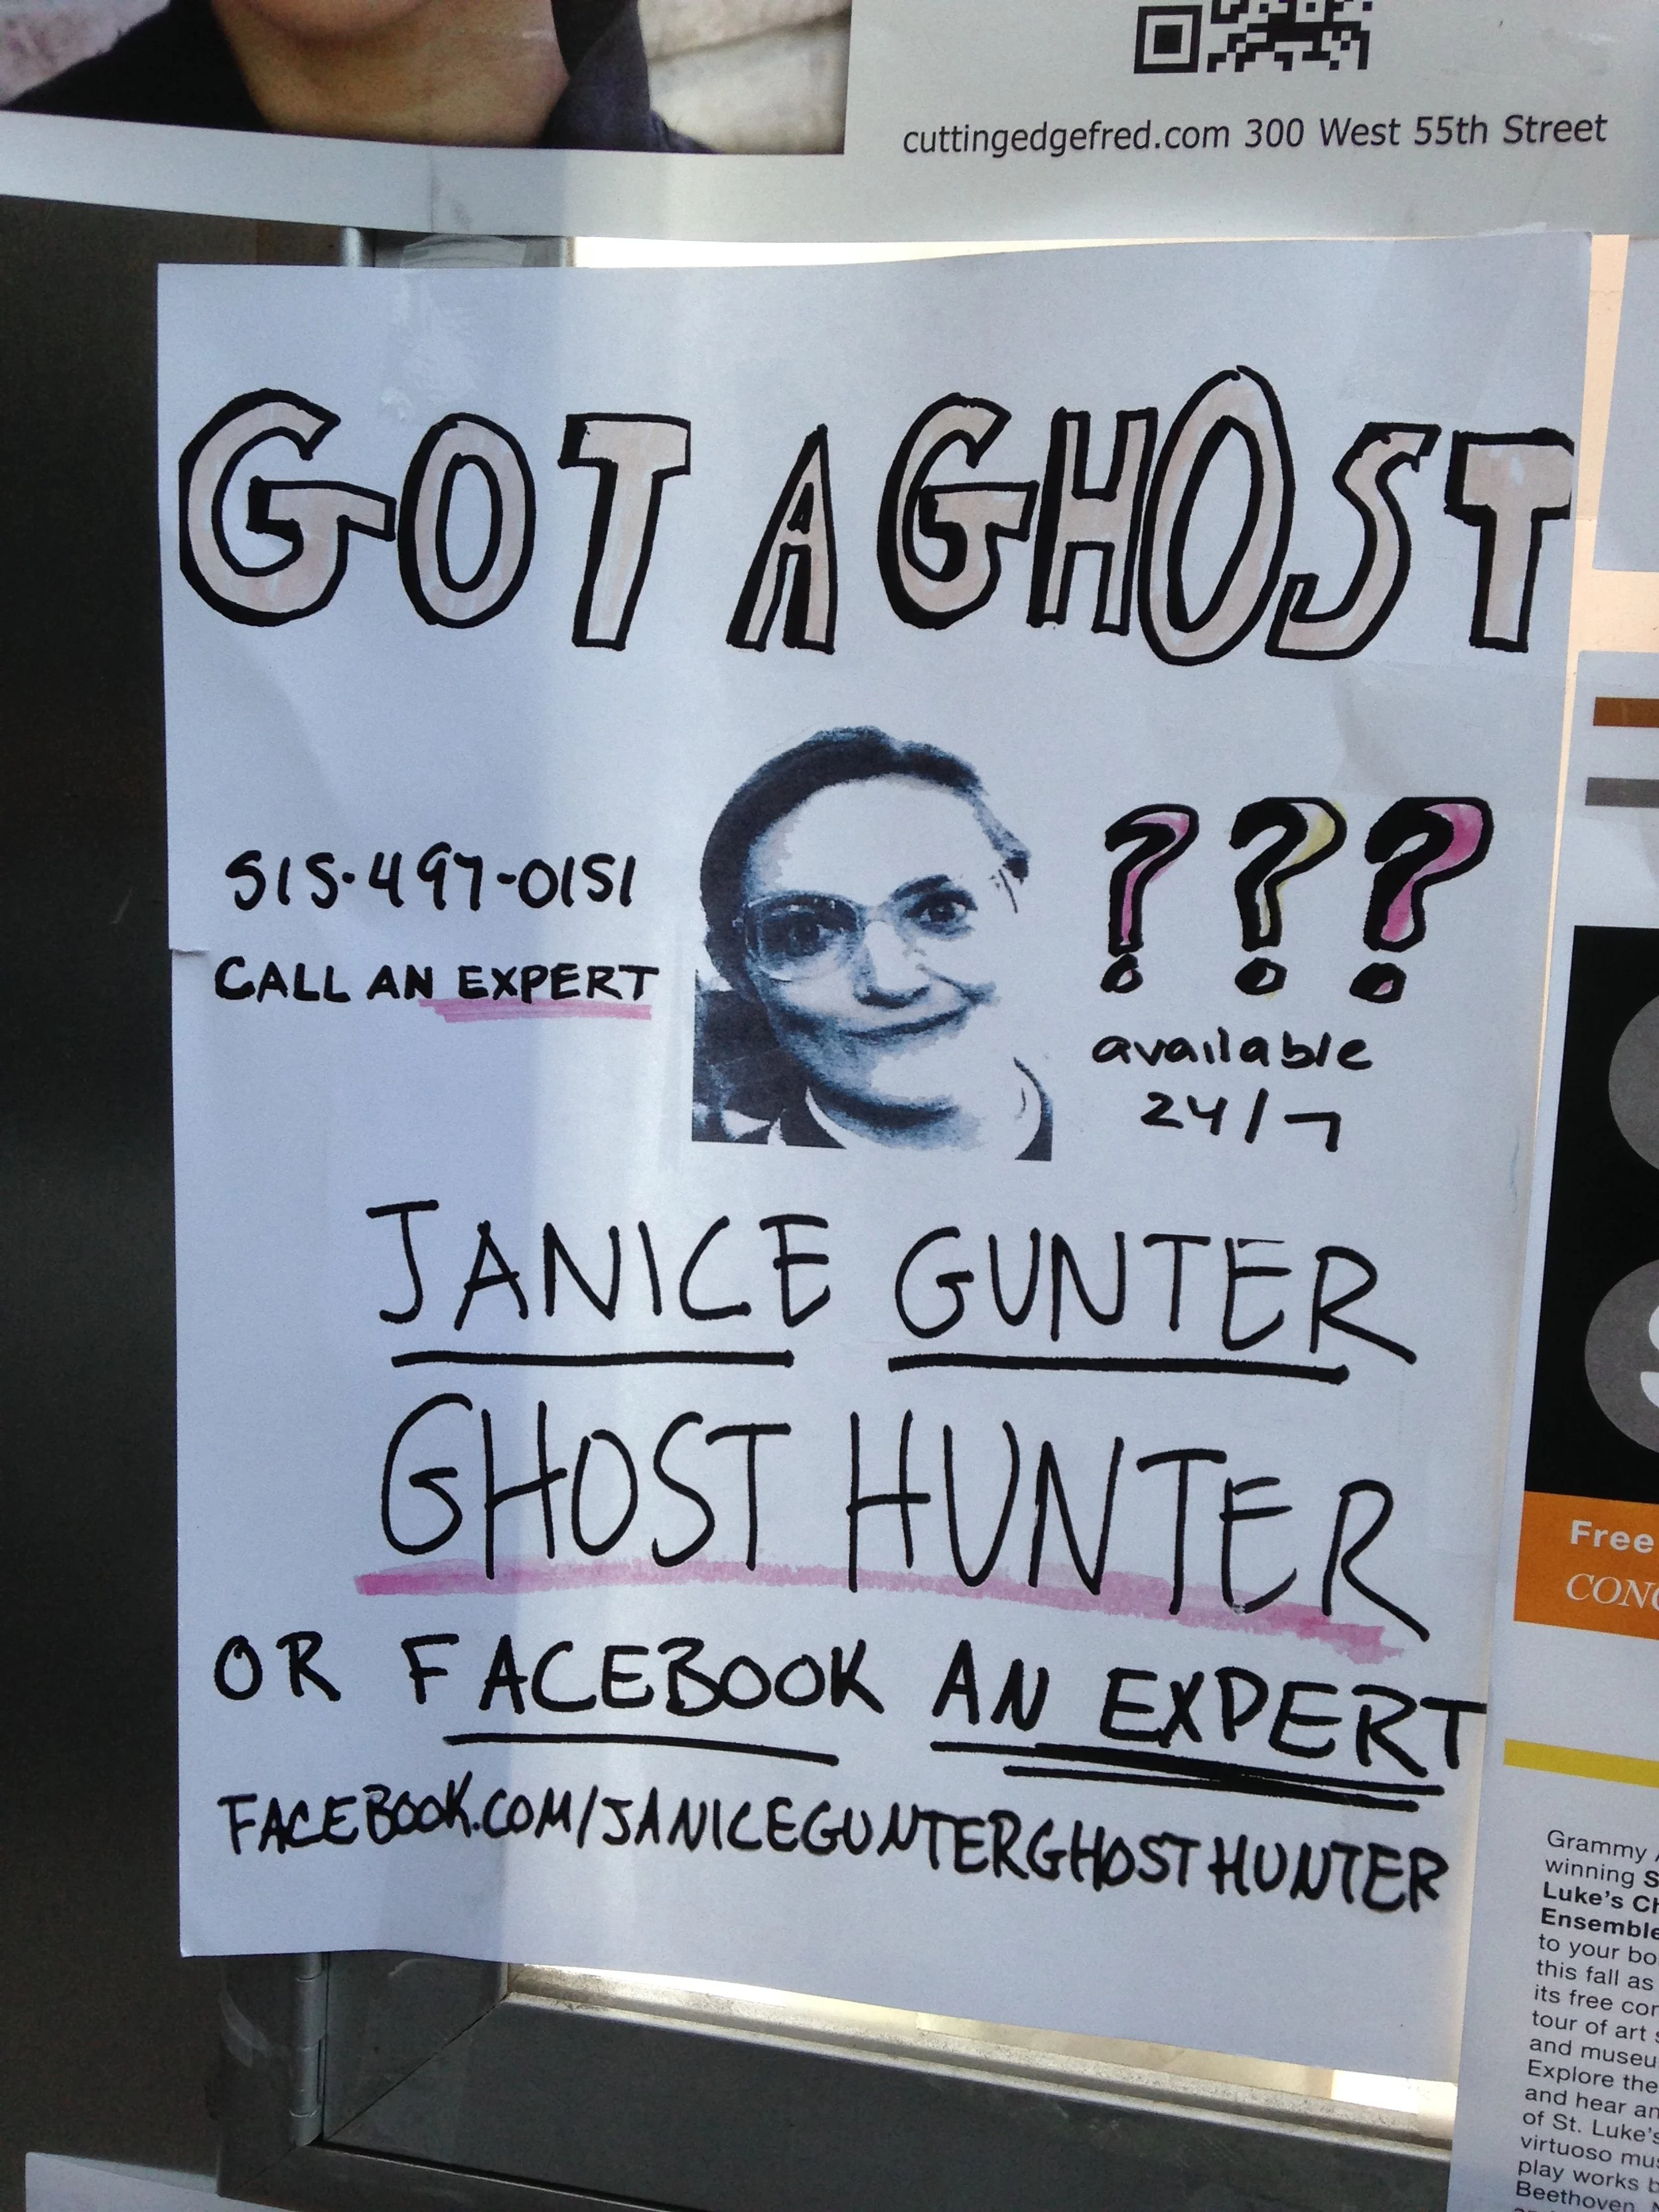 cuttingedgefred.com 300 West 55th Street
GOT A GHOST
???
515-497-0151
CALL AN EXPERT
available
24/7
JANICE GUNTER
GHOST HUNTER
OR FACEBOOK AN EXPERT
FACEBOOK.COM/JANICEGUNTERGHOSTHUNTER
Free
Grammy
winning
Luke's
Ensemble
to your
this fall as
its free
tour of art
and
Explore the
and hear
of St. Luke's
virtuoso
play works
Beethoven,